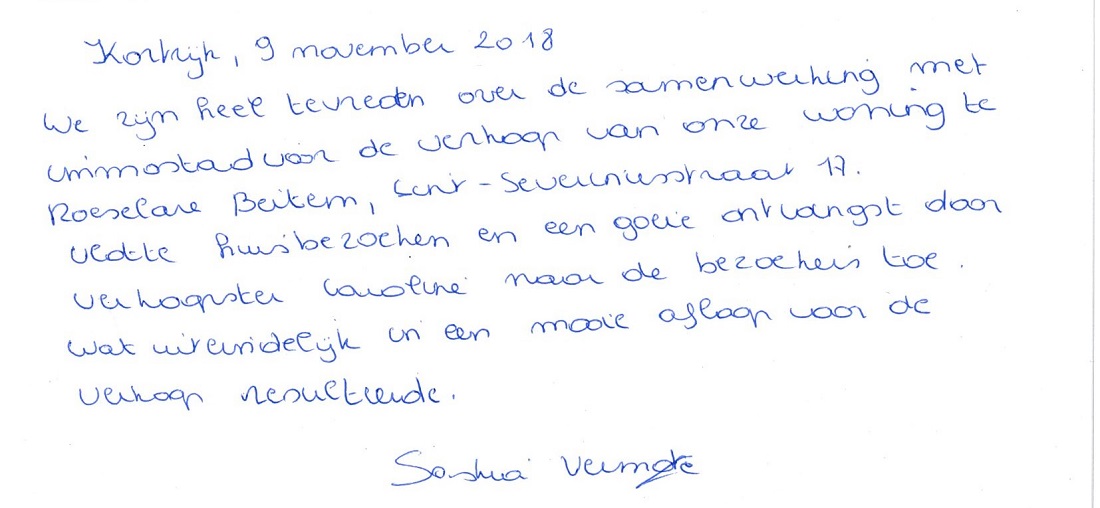 Kortrijk, 9 november 2018
We zijn heel tevreden over de samenwerking met
immostad voor de verkoop van onze woning te
Roeselare Beitem, Sint-Severinusstraat 17.
vlotte huisbezoeken en een goeie ontvangst door
verkoopster Caroline naar de bezoekers toe.
wat uiteindelijk in een mooie afloop voor de
verkoop resulteerde.
Saskia